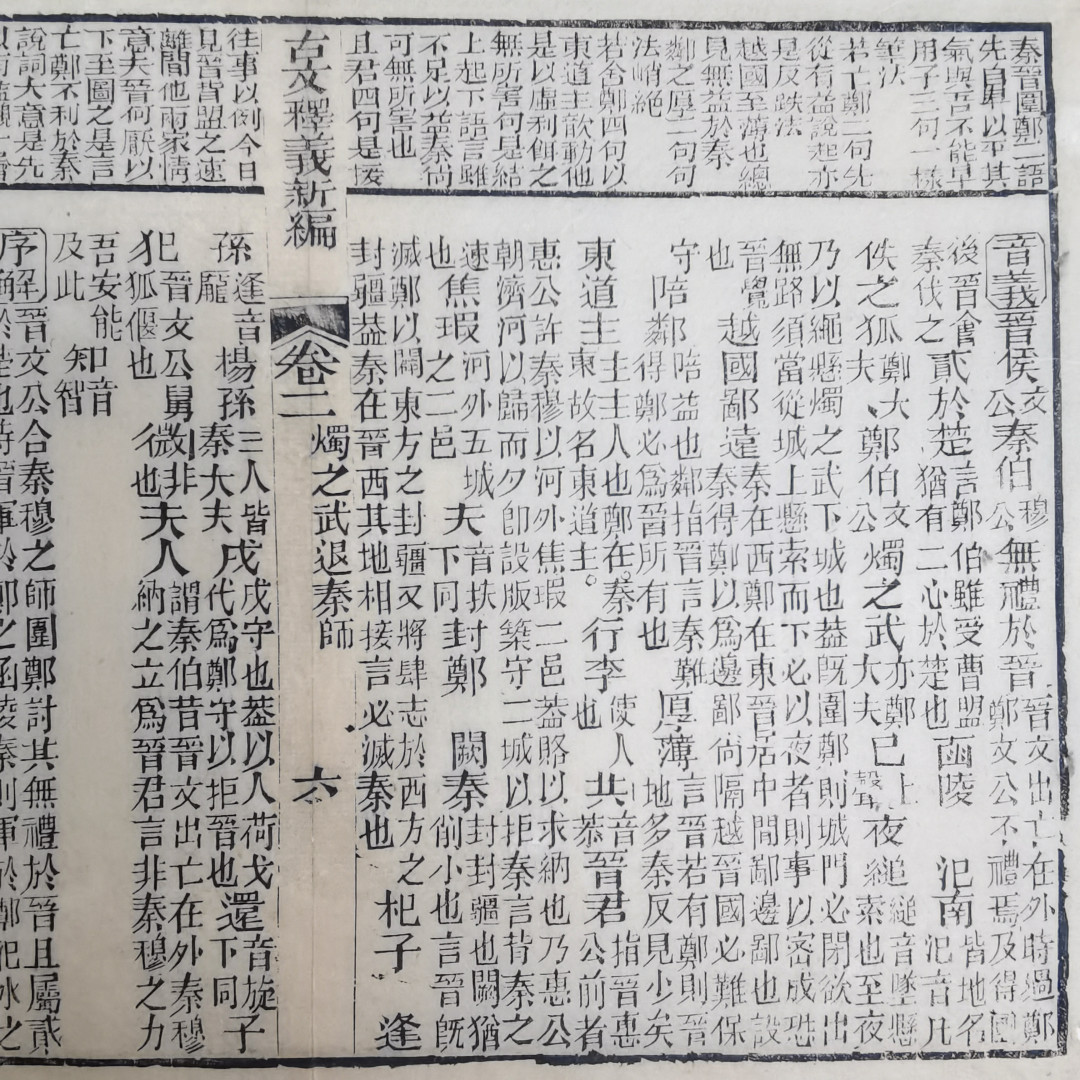 秦晉圍鄭二語
先自卑以平其
氣與吾不能早
用子三句一樣
筆法
若亡鄭二句先
從有益說起亦
是反跌法
越國至薄也總
見無益於秦
鄰之厚二句句
法峭絕
若舍鄭四句以
東道主歆動他
是以虛利餌之
無所害句是結
上起下語言雖
不足以益秦尚
可無所害也
且君四句是援
往事以例今日
見晉背盟之速
離間他兩家情
意夫晉何厭以
下至圖之是言
亡鄭不利於秦
說詞大意是先
音義晉侯文公秦伯穆公無禮於晉晉文出亡在外時過鄭鄭文公不禮焉及得國
後晉會秦伐之貳於楚言鄭伯雖受曹盟猶有二心於楚也函陵 氾南皆地名氾音凡
佚之狐鄭大夫、鄭伯文公燭之武亦鄭大夫已上聲夜縋縋音墜懸索也至夜
乃以繩懸燭之武下城也葢既圍鄭則城門必閉欲出無路須當從城上懸索而下必以夜者則事以密成恐
晉覺也越國鄙遠秦在西鄭在東晉居中間鄙邊鄙也設秦得鄭以爲邊鄙尚隔越晉國必難保
守陪鄰陪益也鄰指晉言秦難得鄭必爲晉所有也厚薄言晉若有鄭則晉地多秦反見少矣
東道主主主人也鄭在秦東故名東道主。行李使人也共音恭晉君指晉惠公前者
惠公許秦穆以河外焦瑕二邑葢賂以求納也乃惠公朝濟河以歸而夕卽設版築守二城以拒秦言背秦之
速也焦瑕河外五城之二邑夫音扶下同封鄭 闕秦封封疆也闕猶削小也言晉旣
滅鄭以闢東方之封疆又將肆志於西方之封疆葢秦在晉西其地相接言必滅秦也杞子 逢
古文釋義新編 卷二 燭之武退秦師 六
孫逢音龐楊孫三人皆秦大夫戍戍守也葢以人荷戈代爲鄭守以拒晉也還音旋下同子
犯晉文公舅狐偃也微非也夫人謂秦伯昔晉文出亡在外秦穆納之立爲晉君言非秦穆之力
吾安能及此知音智
序解晉文公合秦穆之師圍鄭討其無禮於晉且屬貳
於楚也時晉軍於鄭之函陵秦則軍於鄭氾水之